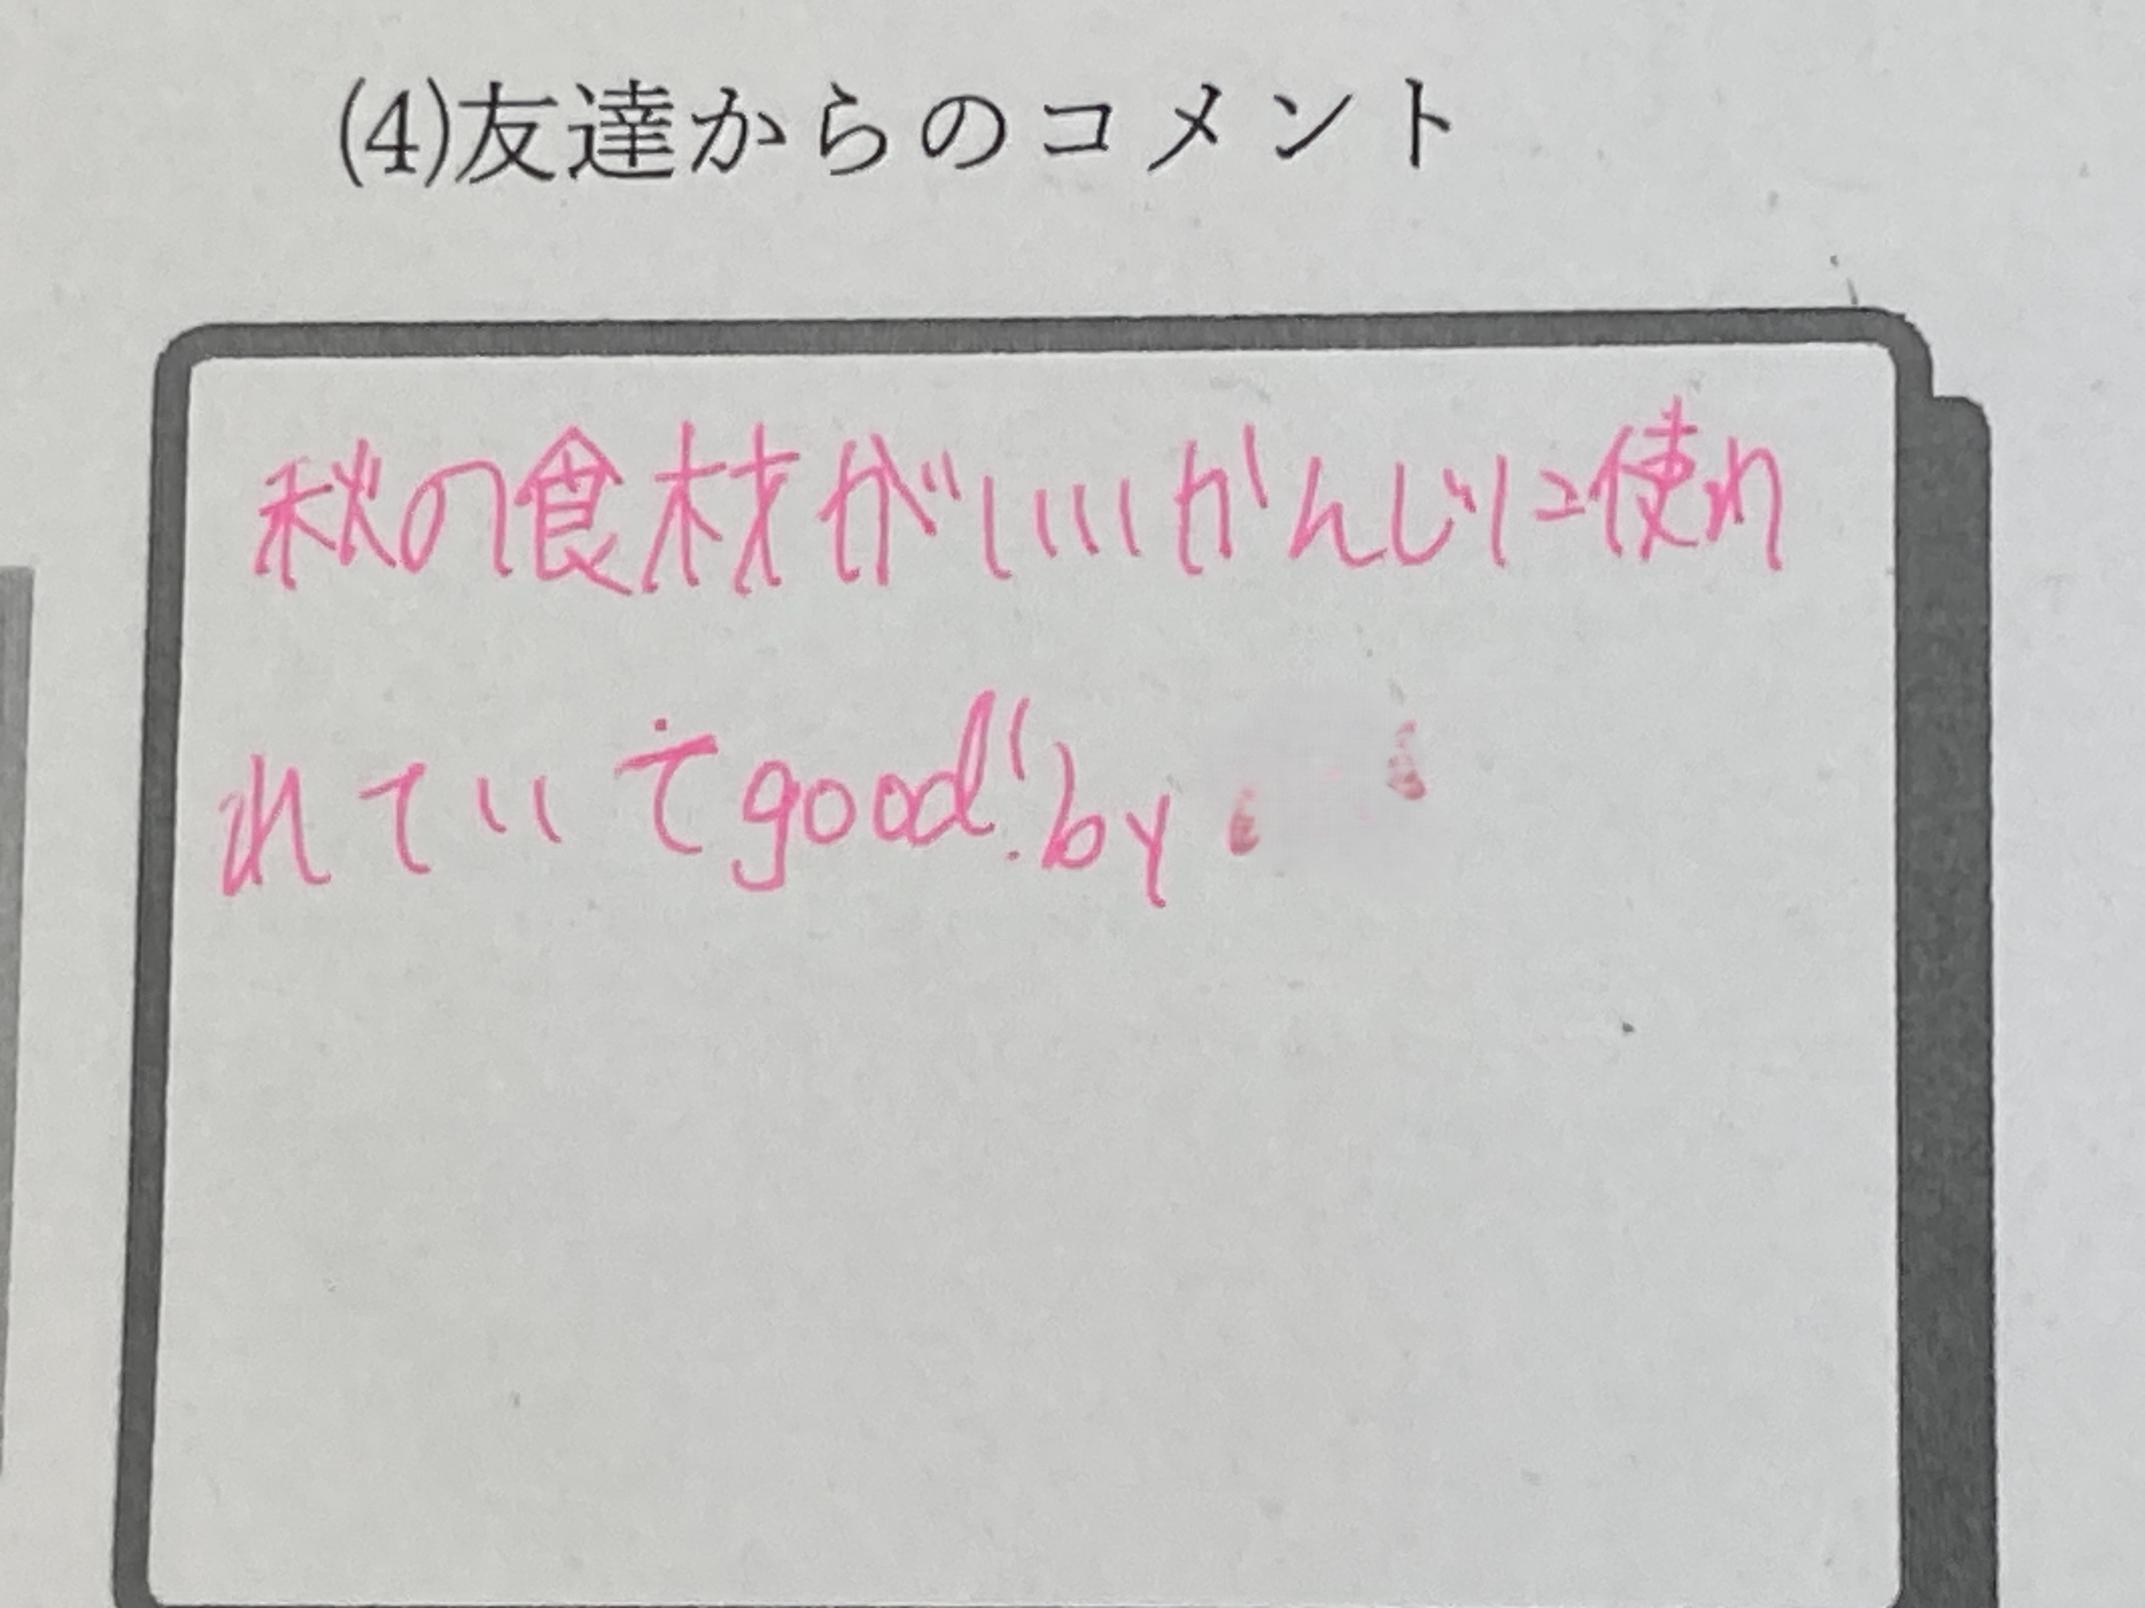 (4)友達からのコメント
秋の食材がいいかんじに使わ
れていてgood!by